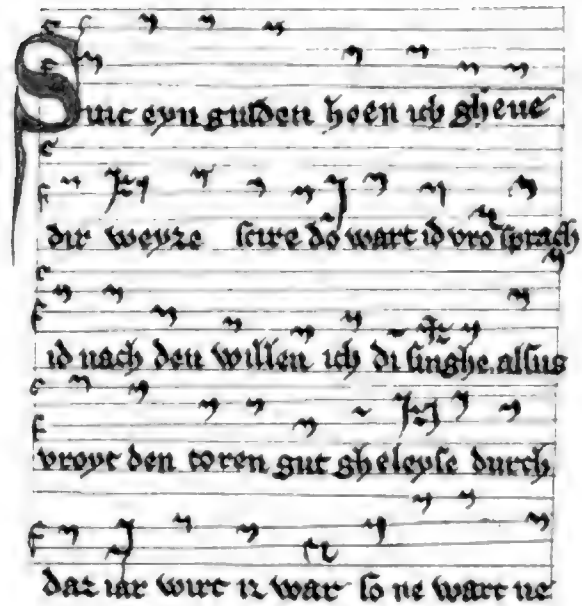 Swic eyn gulden hoen ich gheue
dir weyze scire do wart id vro sprach
id nach den willen ich di singhe. alsus
vroyt den toren gut gheleyse durch
daz iar wirt iz war so ne wart ne